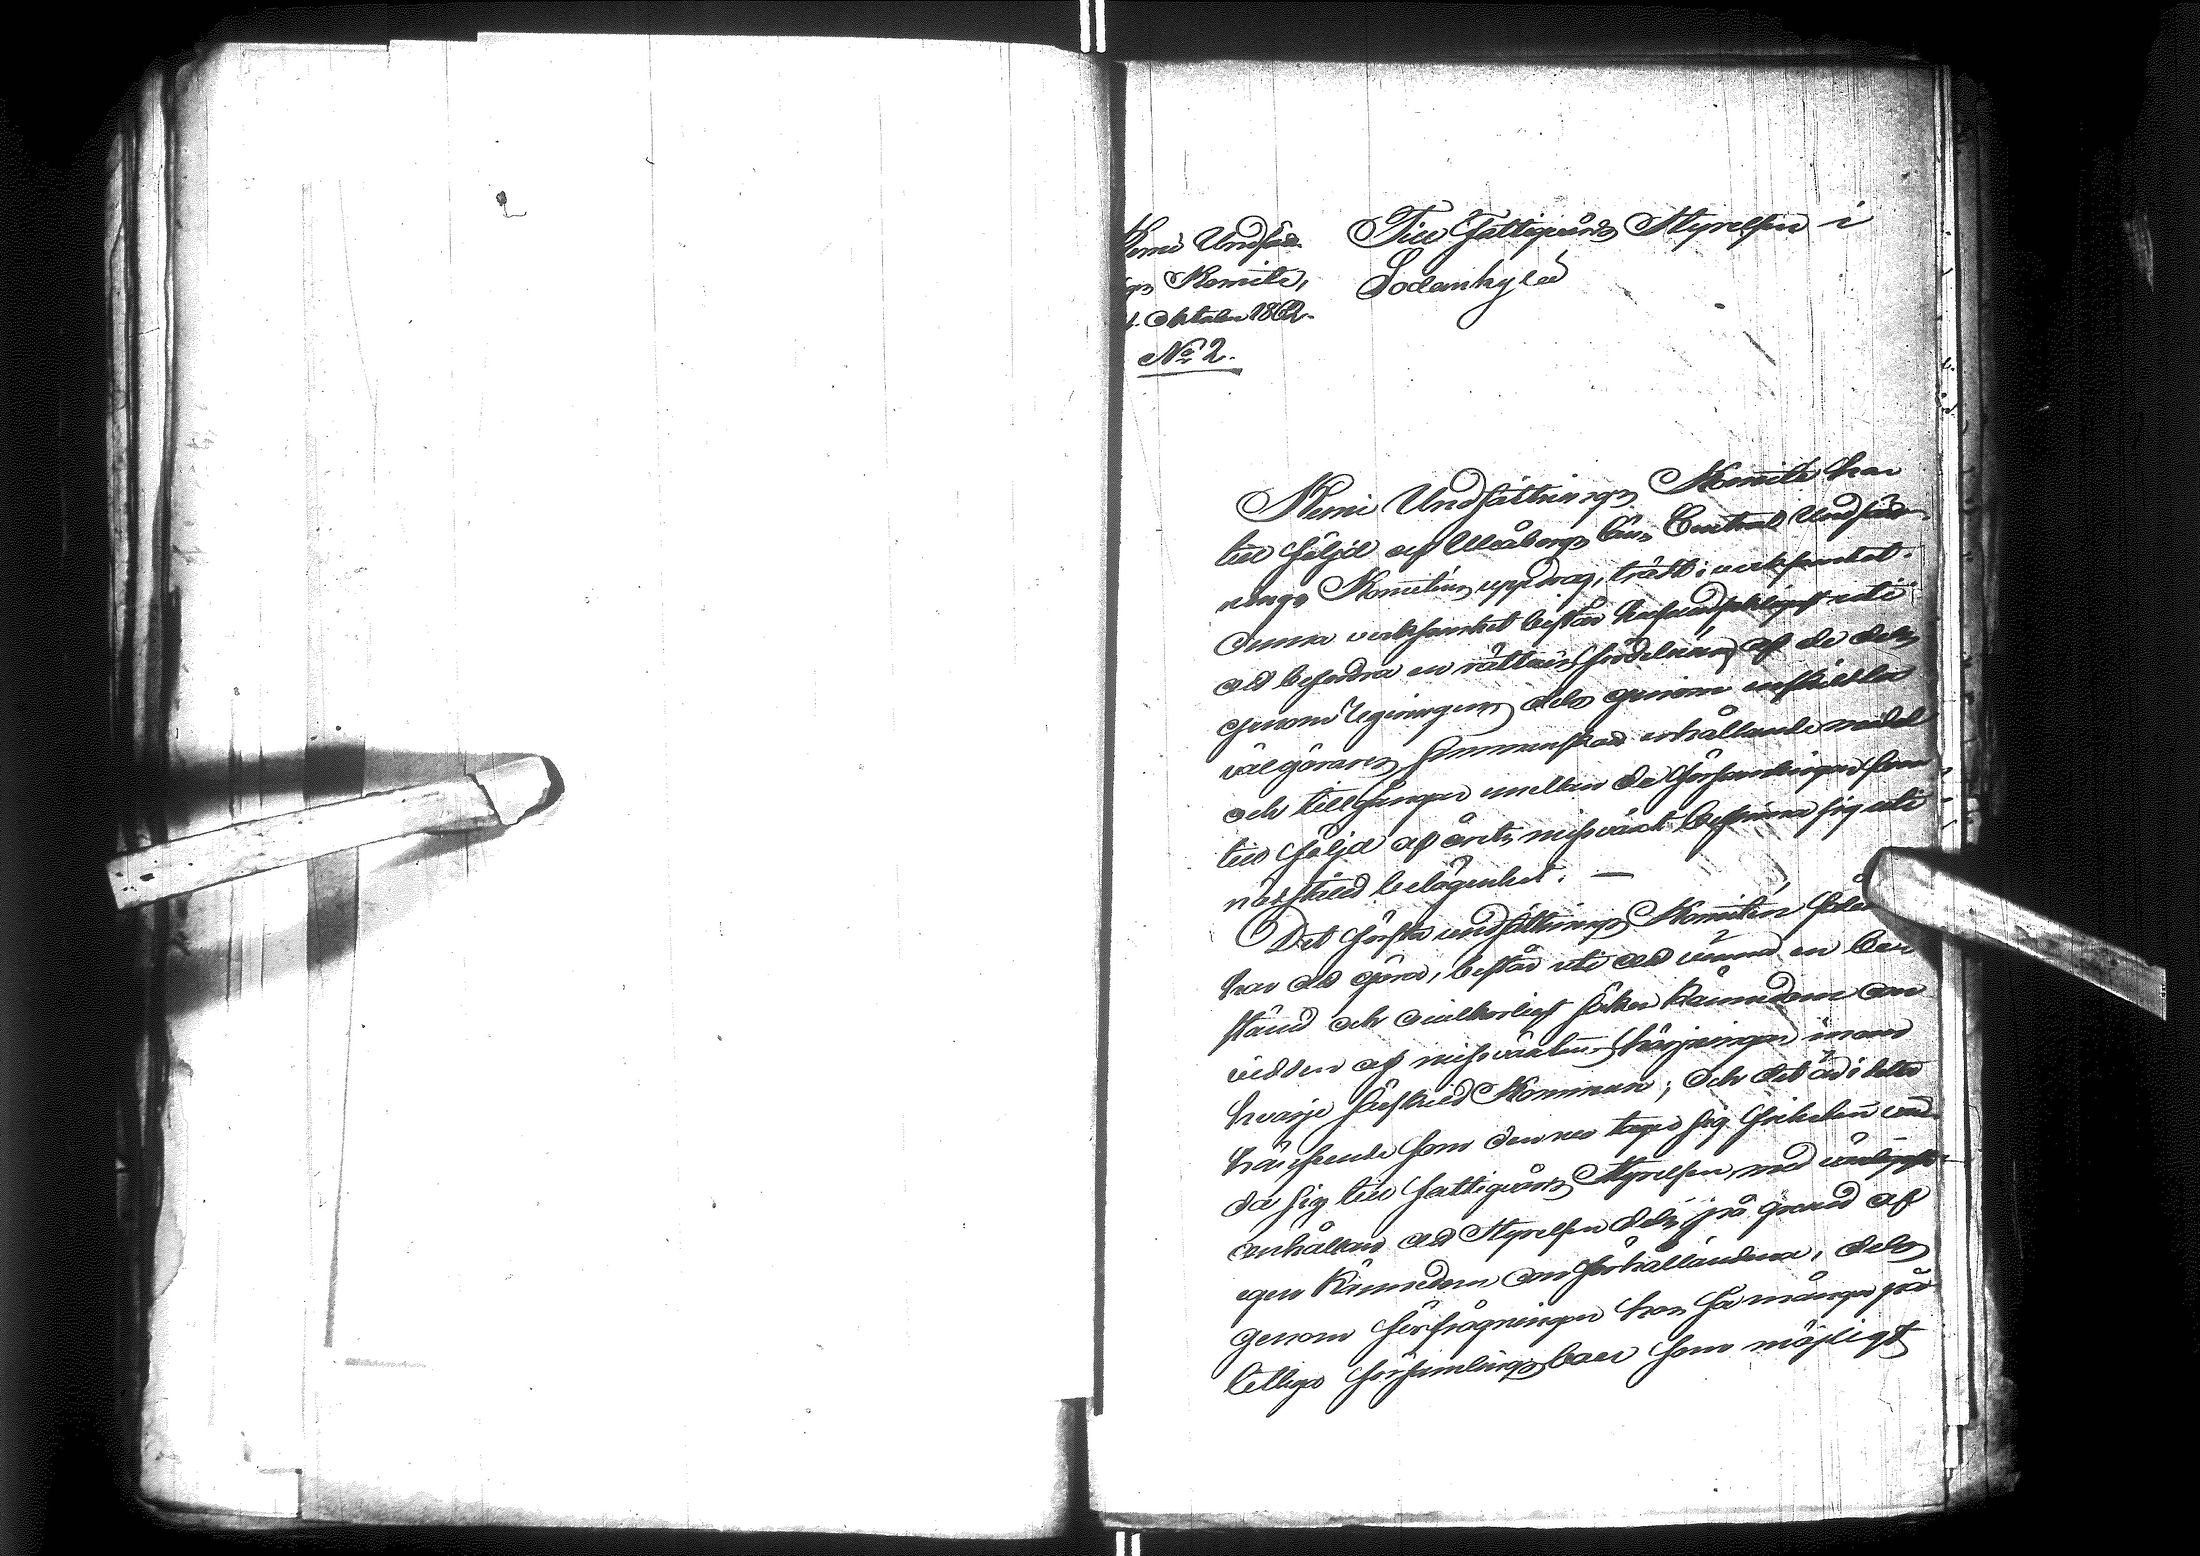 Kemi Undsätt-
ngs Komite,
1. Oktober 1862.
No 2.
Till Fattigvårds Styrelsen i
Sodankylä
Kemi Undsättnings Komite har
till följd af Uleåborgs läns Central Undsätt-
nings Komitéens uppdrag, trädt i verksamhet.
Denna verksamhet består hufvudsakligast uti
att befordra en rättvis fördelning af de dels
genom regeringens dels genom enskildta
välgörares sammanskott erhållande medel
och tillgångar mellan de församlingar som
till följd af årets missväxt befinna sig uti
nödställd belägenhet. —
Det första undsättnings Komitén
har att göra, består uti att vinna en be-
stämd och ovilkorligt säker kännedom om
vidden af missväxtens härjningar inom
hvarje särskild Kommun; och det är i detta
hänseende som denna tager sig friheten vän-
da sig till Fattigvårds Styrelsen, med
anhållan att Styrelsen dels på grund af
egen kännedom om förhållandena, dels
genom förfrågningar hos så många på-
litliga församlingsboer som möjligt